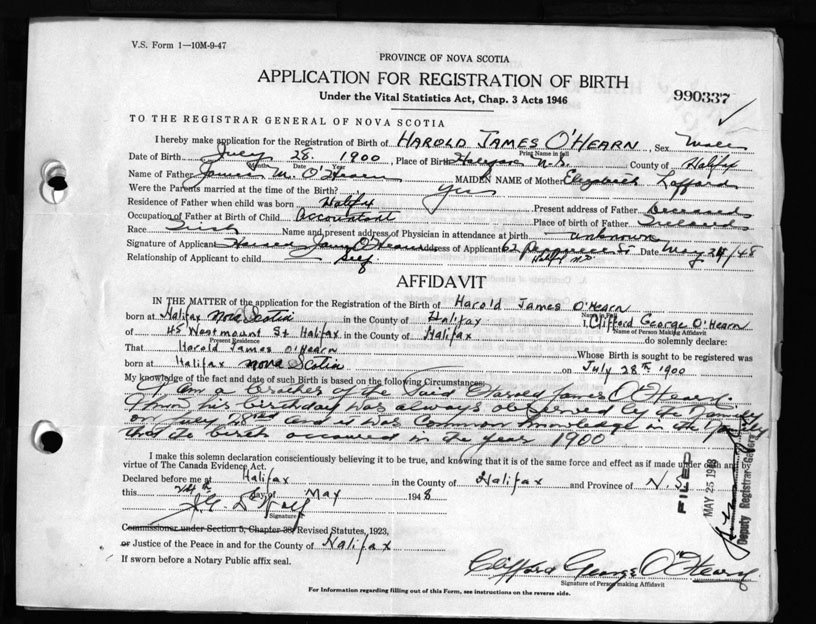 V.S. Form 1—10M-9-47
PROVINCE OF NOVA SCOTIA
APPLICATION FOR REGISTRATION OF BIRTH
990337
Under the Vital Statistics Act, Chap. 3 Acts 1946
TO THE REGISTRAR GENERAL OF NOVA SCOTIA
I hereby make application for the Registration of Birth of HAROLD JAMES O'HEARN, Sex Male
Print Name in full
Date of Birth July 28. 1900, Place of Birth Halifax N.S. County of Halifax
Month Date Year
Name of Father James M. O'Hearn MAIDEN NAME of Mother Elizabeth Lafford
Were the Parents married at the time of the Birth? Yes
Residence of Father when child was born Halifax Present address of Father Deceased
Occupation of Father at Birth of Child Accountant Place of birth of Father
Race Irish Name and present address of Physician in attendance at birth unknown
Signature of Applicant Harold James O'Hearn Address of Applicant 62 St Date May 24/48
Halifax N.S.
Relationship of Applicant to child Self
AFFIDAVIT
IN THE MATTER of the application for the Registration of the Birth of Harold James O'Hearn
born at Halifax Nova Scotia in the County of Halifax I, Clifford George O'Hearn
Name of Person Making Affidavit
of 45 Westmount St Halifax in the County of Halifax do solemnly declare:
Present Residence
That Harold James O'Hearn Whose Birth is sought to be registered was
born at Halifax Nova Scotia on July 28th 1900
My knowledge of the fact and date of such Birth is based on the following Circumstances:
I am a brother of the said Harold James O'Hearn.
his birthday was always observed by the family
on July 28 and it was common knowledge in the family
that the birth occurred in the year 1900
I make this solemn declaration conscientiously believing it to be true, and knowing that it is of the same force and effect as if made under oath and
virtue of The Canada Evidence Act.
Declared before me at Halifax in the County of Halifax and Province of N.S.
this 24th day of May 1948
Signature
Commissioner under Section 5, Chapter 38, Revised Statutes, 1923,
or Justice of the Peace in and for the County of Halifax
If sworn before a Notary Public affix seal.
Clifford George O'Hearn
Signature of Person making Affidavit
For Information regarding filling out of this Form, see instructions on the reverse side.
FILED
MAY 25 1948
Deputy Registrar General